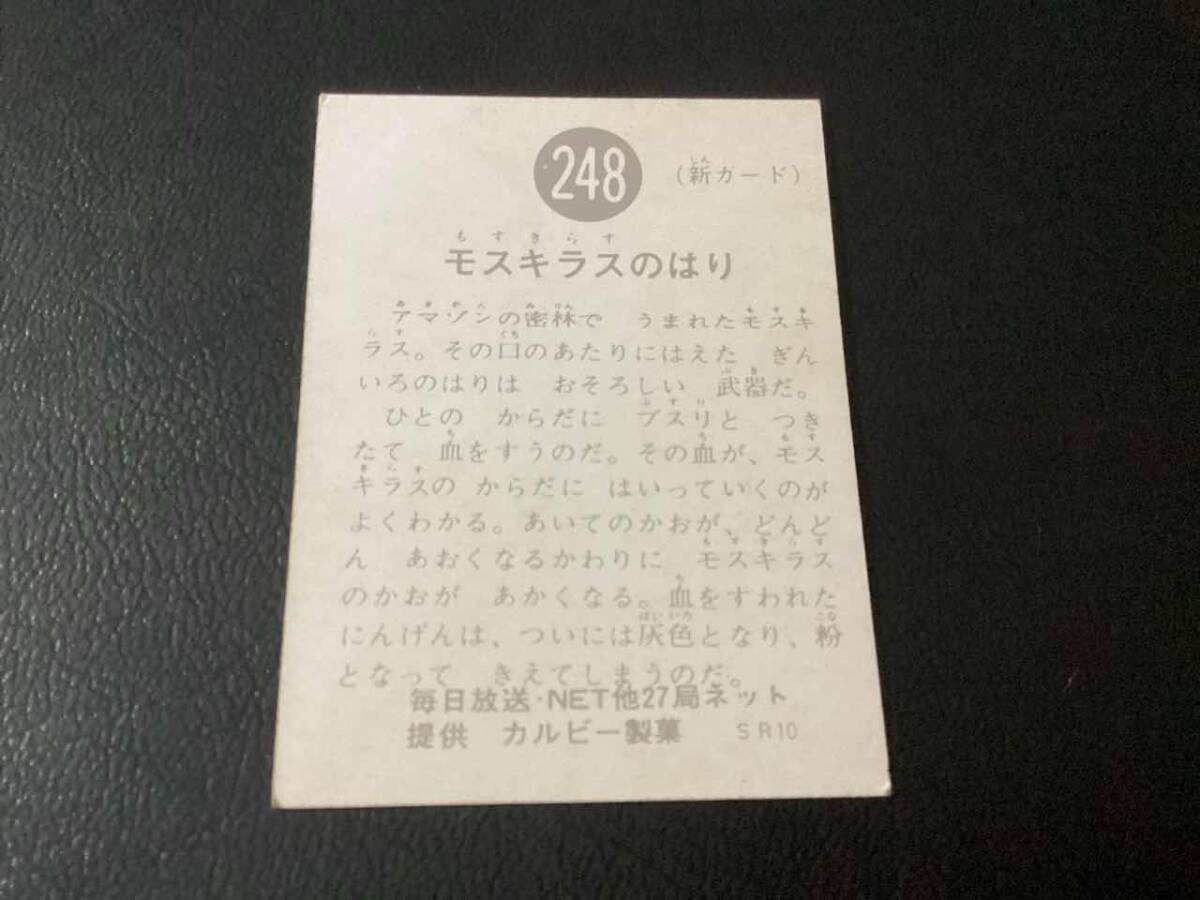 248 （新カード）
モスキラスのはり
アマゾンの密林で　うまれたモスキ
ラス。その口のあたりにはえた　ぎん
いろのはりは　おそろしい　武器だ。
ひとの　からだに　ブスリと　つき
たて　血をすうのだ。その血が、モス
キラスの からだに　はいっていくのが
よくわかる。あいてのかおが、どんど
ん　あおくなるかわりに　モスキラス
のかおが　あかくなる。血をすわれた
にんげんは、ついには灰色となり、粉
となって　きえてしまうのだ。
毎日放送・NET他27局ネット
提供　カルビー製菓　SR10